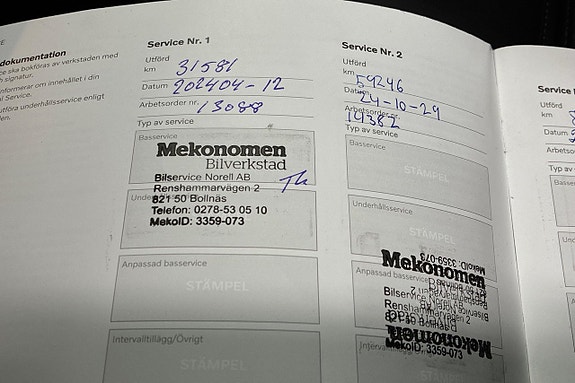 dokumentation
ce ska bokföras av verkstaden med
ch signatur.
nformerar om innehållet i din
al Service.
tföra underhållsservice enligt
den.
Service Nr. 1
Utförd
km 31581
Datum 202404-12
Arbetsorder nr. 13088
Typ av service
Basservice
Mekonomen
Bilverkstad
Bilservice Norell AB
Renshammarvägen 2
821 50 Bollnäs
Telefon: 0278-53 05 10
MekoID: 3359-073
Anpassad basservice
STÄMPEL
Intervalltillägg/Övrigt
STÄMPEL
Service Nr. 2
Utförd
km 59246
Datum 24-10-29
Arbetsorder nr. 14382
Typ av service
Basservice
STÄMPEL
Underhållsservice
STÄMPEL
MekoID: 3359-073
Mekonomen
Anpassad basservice
Bilservice Norell AB
Renshammarvägen 2
821 50 Bollnäs
Mekonomen
MekoID: 3359-073
Service
Utförd
km
Datum
Arbetsor
Typ av